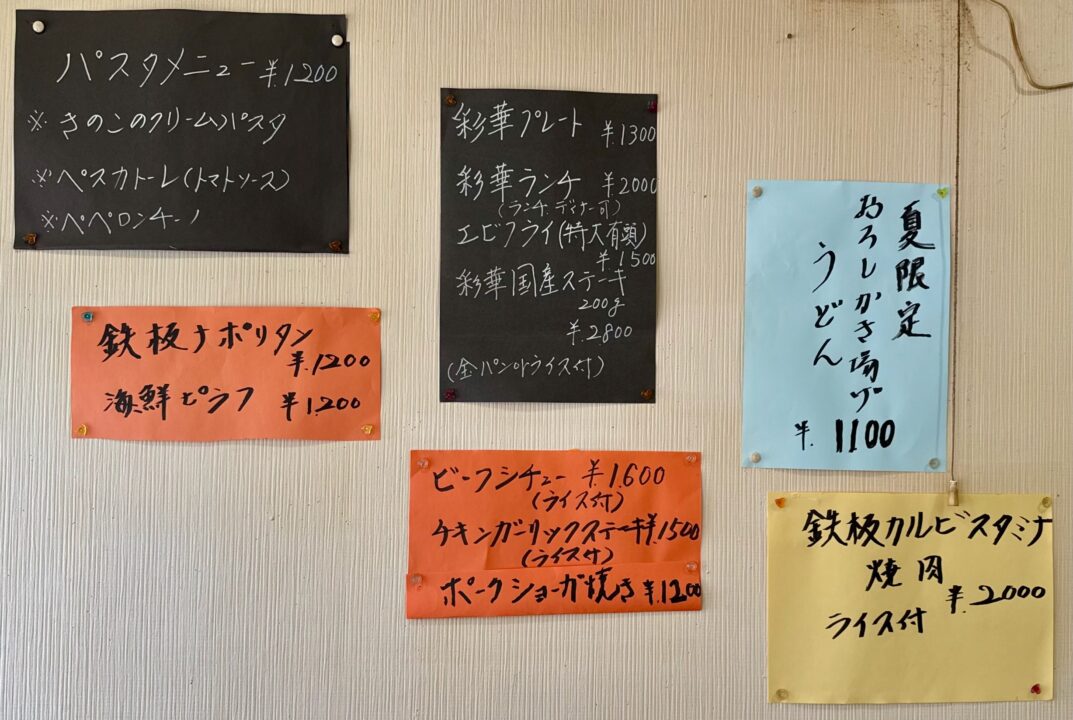 パスタメニュー ¥1200
※きのこのクリームパスタ
※ペスカトーレ(トマトソース)
※ペペロンチーノ
鉄板ナポリタン
¥.1200
海鮮ピラフ ¥1.200
彩華プレート ¥.1300
彩華ランチ ¥2000
(ランチ.ディナー可)
エビフライ(特大有頭)
¥.1500
彩華国産ステーキ
200g
¥.2800
(全パンorライス付)
ビーフシチュー ¥.1.600
(ライス付)
チキンガーリックステーキ¥.1500
(ライス付)
ポークショーガ焼き ¥.1200
夏限定
おろしかき揚げ
うどん
¥.1100
鉄板カルビスタミナ
焼肉
¥.2000
ライス付